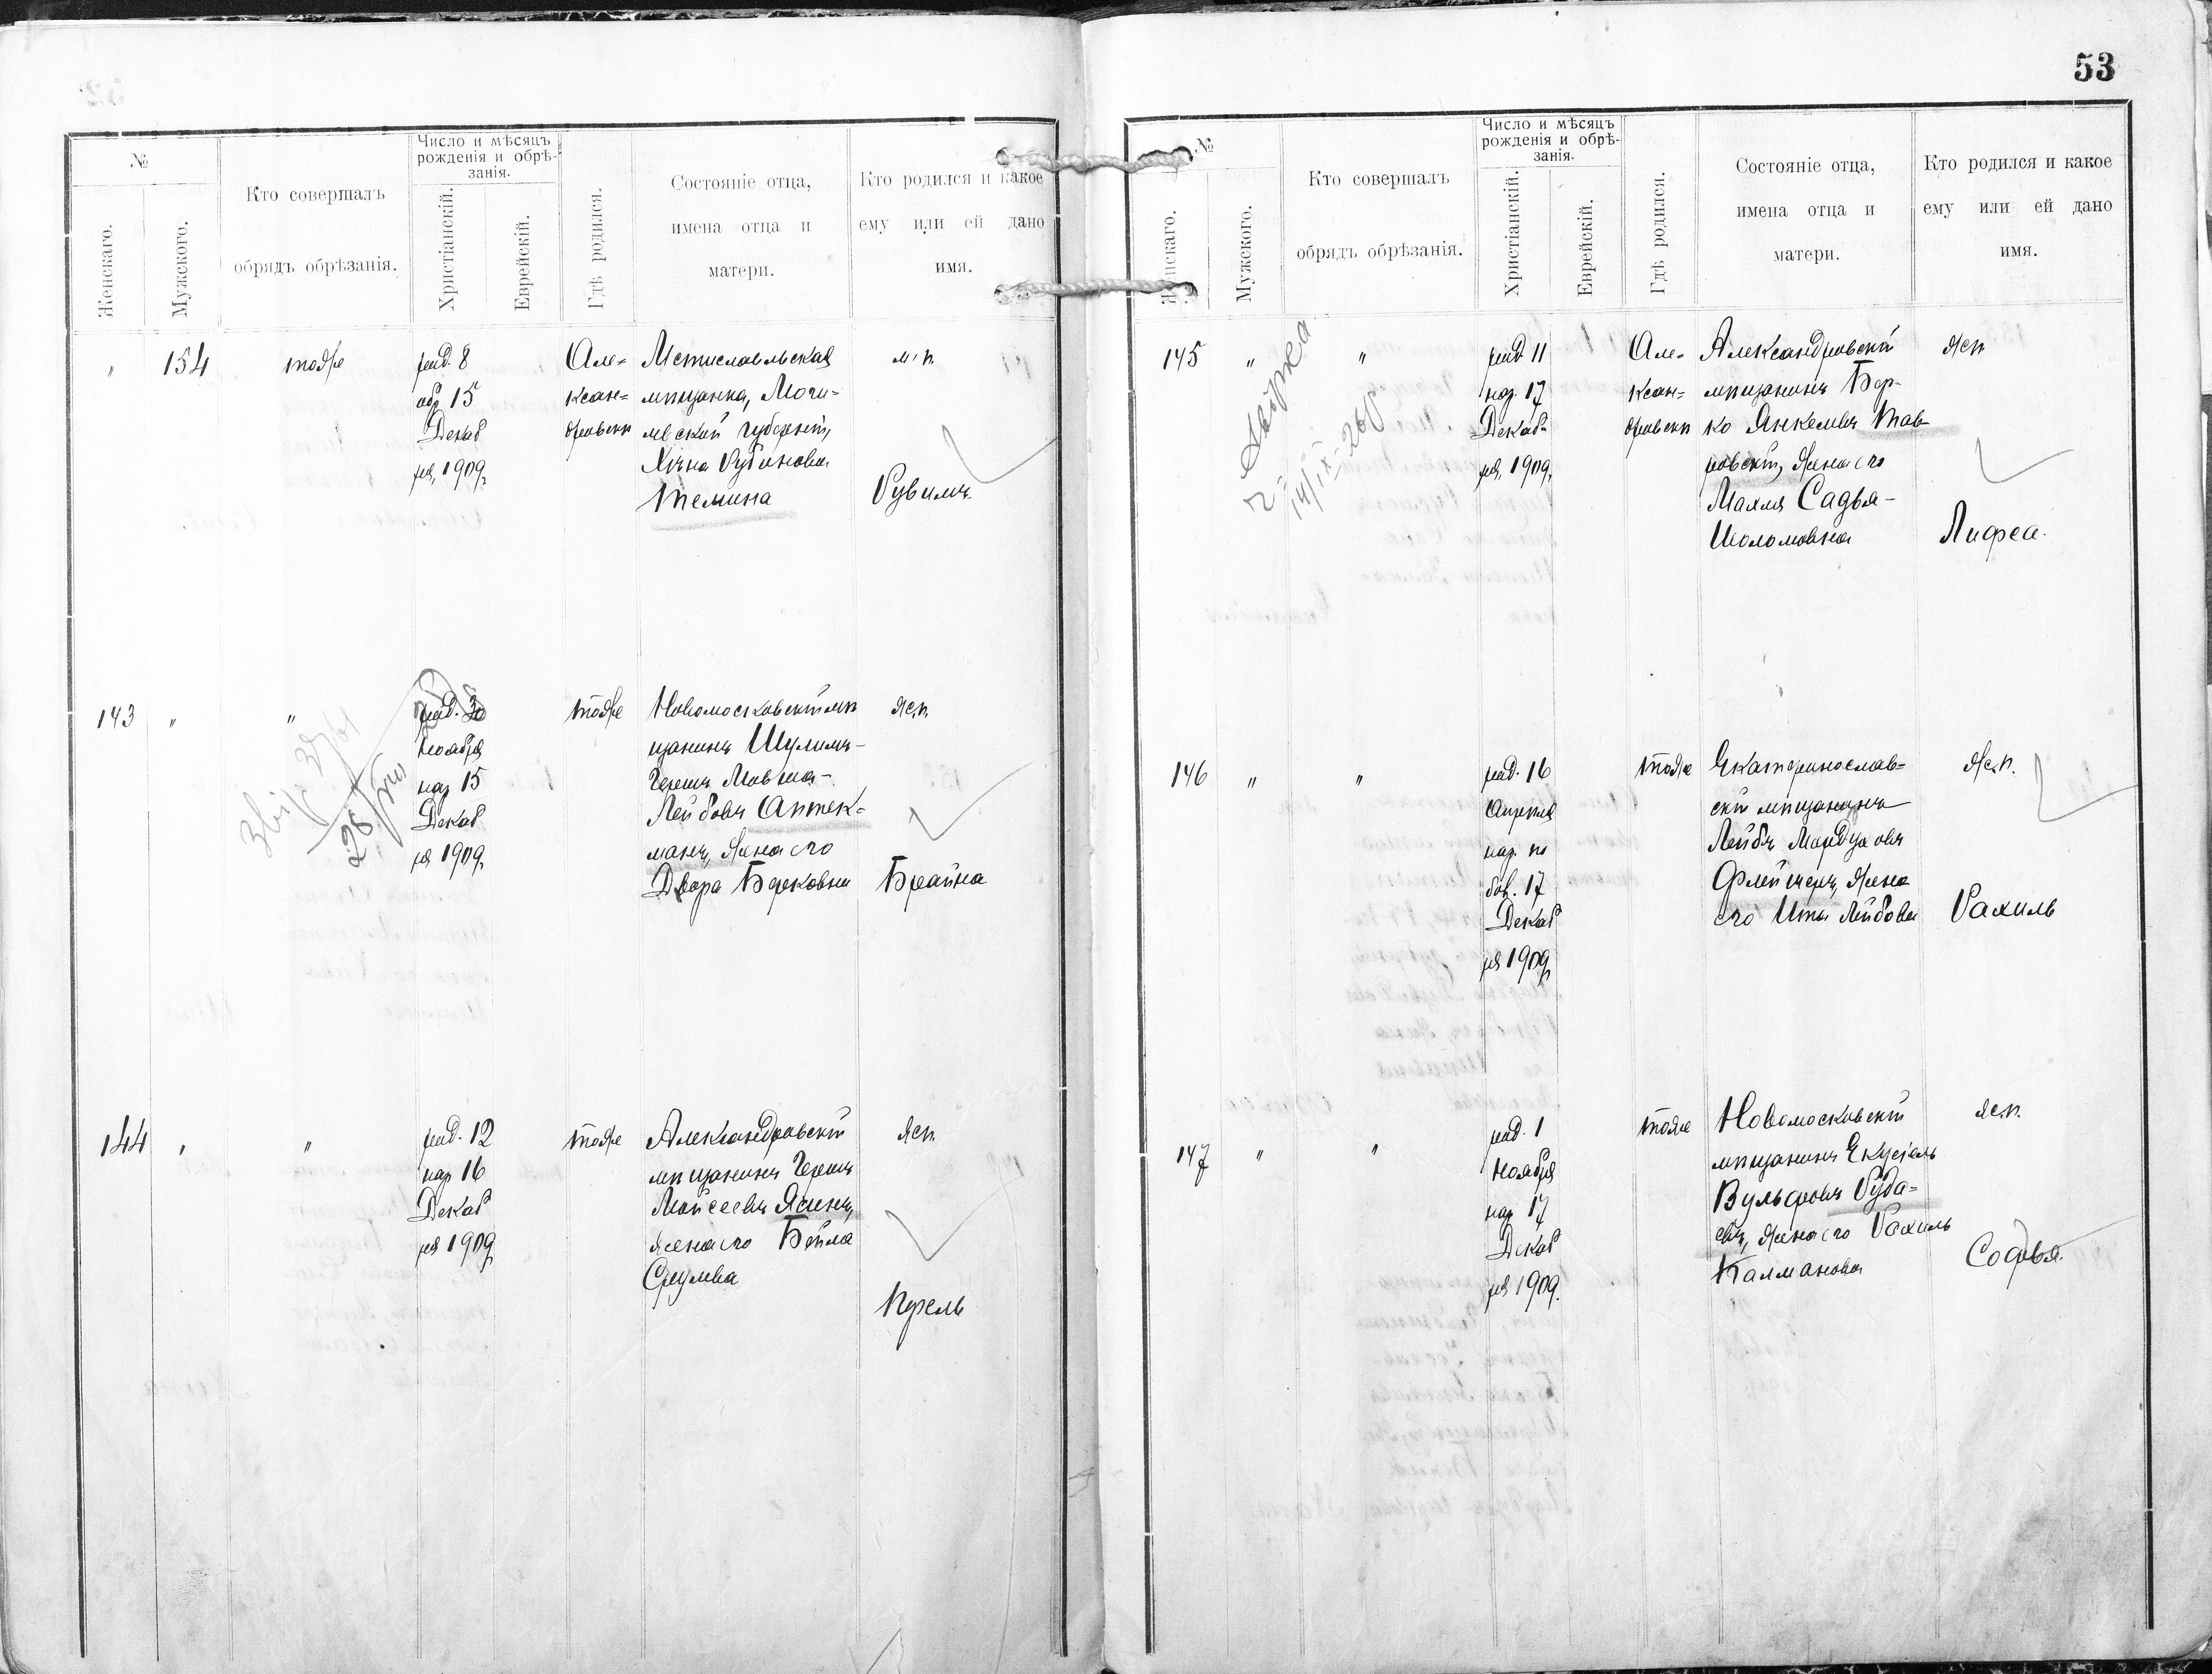 №
Женскаго.
Мужского.
Кто совершалъ
обрядъ обрѣзанія.
Число и мѣсяцъ
рожденія и обрѣ-
занія.
Христіанскій.
Еврейскій.
Гдѣ родился.
Состояніе отца,
имена отца и
матери.
Кто родился и какое
ему или ей дано
имя.
"
154
тоже
род. 8
обр 15
Декаб
ря, 1909
Але=
ксан=
дровскѣ
Мстиславльская
мѣщанка, Моги-
левской губерніи,
Хична Рубинова
Темина
м. п.
Рувимъ
143
"
"
род. 30
Ноября
нар 15
Декаб
ря 1909
тоже
Новомосковскій мѣ
щанинъ Шулимъ-
Гершъ Мовша-
Лейбовъ Аптек=
манъ, Жена его
Двора Берковна
ж.п.
Брайна
28
144
"
"
род. 12
нар 16
Декаб
ря 1909
тоже
Александровскій
мѣщанинъ Гершъ
Мойсеевъ Ясинъ,
жена его Бейла
Срулева
ж.п.
Перель
53
№
Женскаго.
Мужского.
Кто совершалъ
обрядъ обрѣзанія.
Число и мѣсяцъ
рожденія и обрѣ-
занія.
Христіанскій.
Еврейскій.
Гдѣ родился.
Состояніе отца,
имена отца и
матери.
Кто родился и какое
ему или ей дано
имя.
145
"
"
род 11
нар. 17
Декаб-
ря, 1909,
Але-
ксан=
дровскѣ
Александровскій
мѣщанинъ Бер-
ко Янкелевъ Тав-
ровскій, Жена его
Малля Садья-
Шоломовна
ж.п
Лифса.
146
"
"
род. 16
Апрѣля
нар. по
бов. 17
Декаб
ря 1909
тоже
Екатеринослав=
скій мѣщанинъ
Лейбъ Мордуховъ
Флейшеръ, Жена
его Ита Лейбова
ж.п.
Рахиль
147
"
"
род. 1
Ноября
нар 17
Декаб
ря 1909.
тоже
Новомосковскій
мѣщанинъ Екусіель
Вульфовъ Руба=
евъ, Жена его Рахиль
Калманова
ж.п.
Софья.